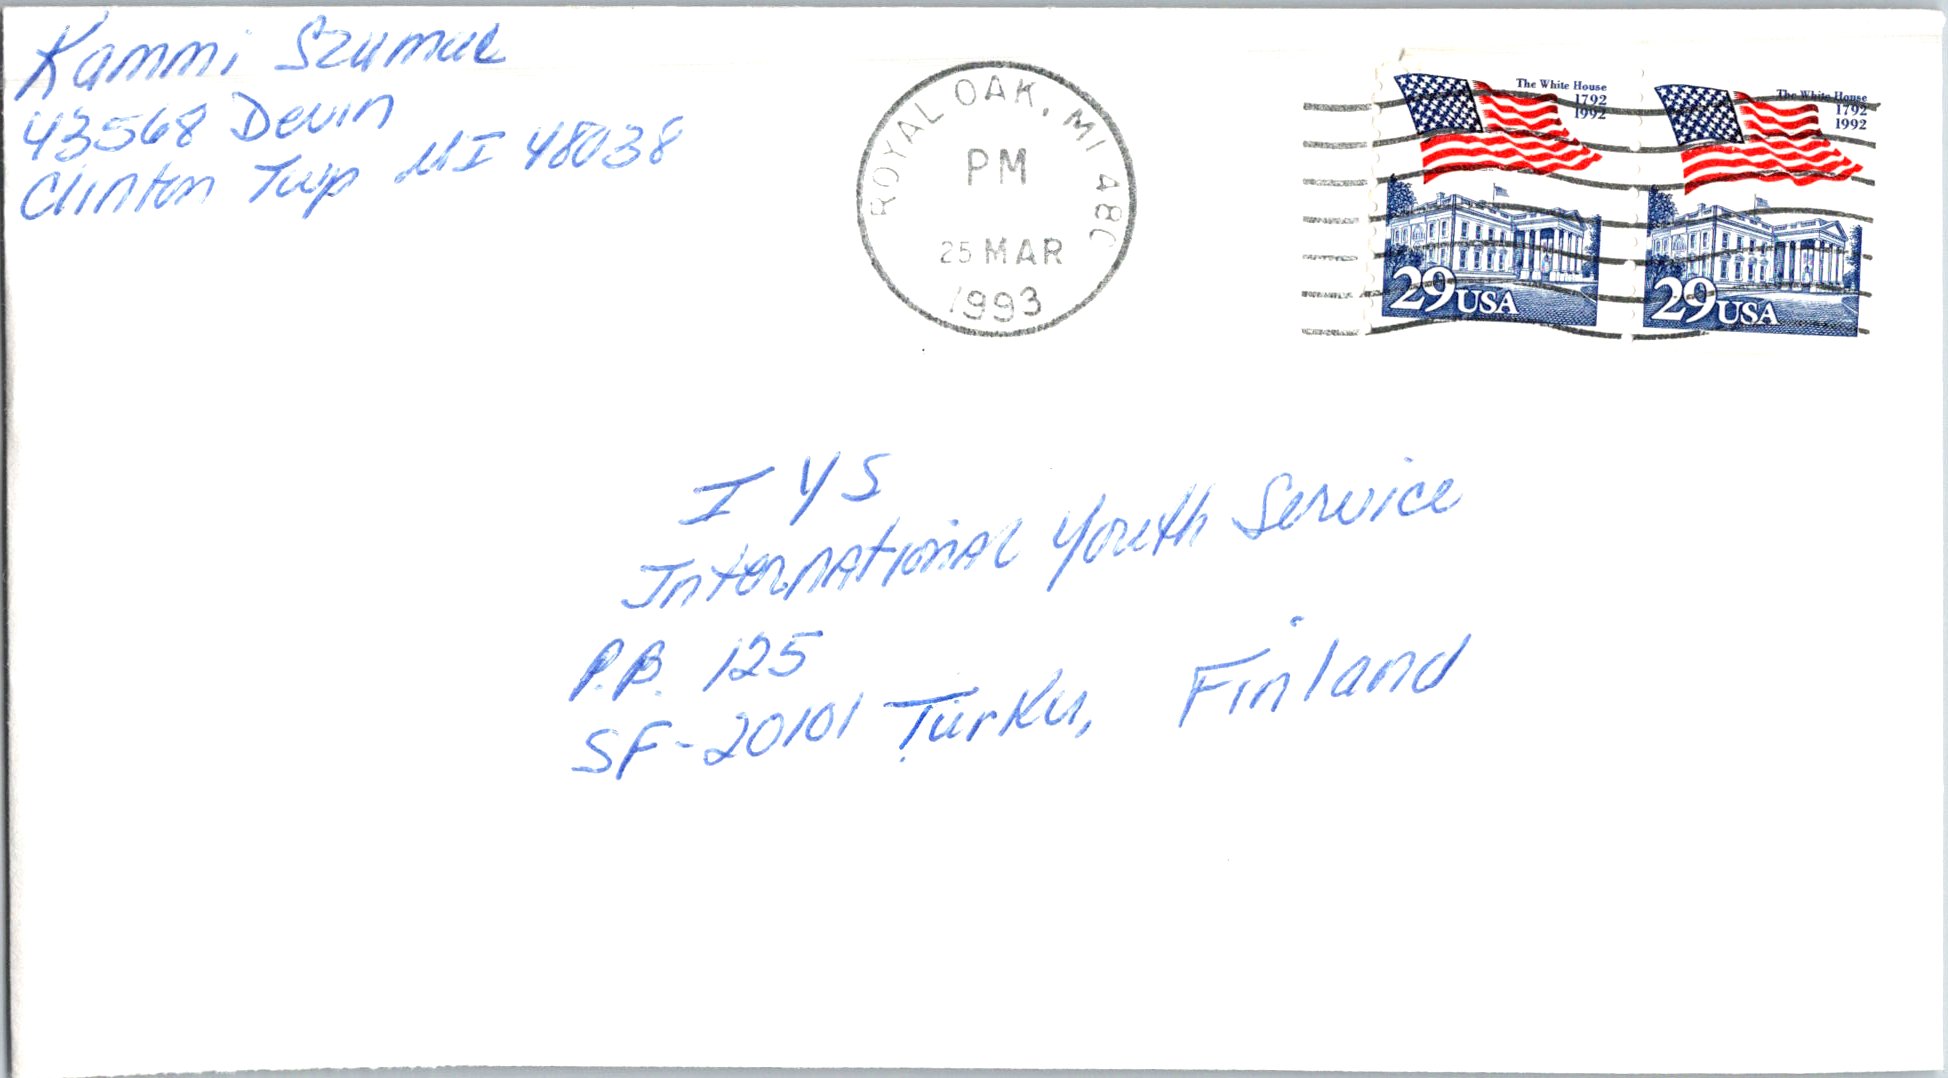 Kammi Szumal
43568 Devin
Clinton Twp MI 48038
ROYAL OAK, MI 480
PM
25 MAR
1993
The White House
1792
1992
29 USA
The White House
1792
1992
29 USA
I Y S
International Youth Service
P.B. 125
SF-20101 Turku, Finland